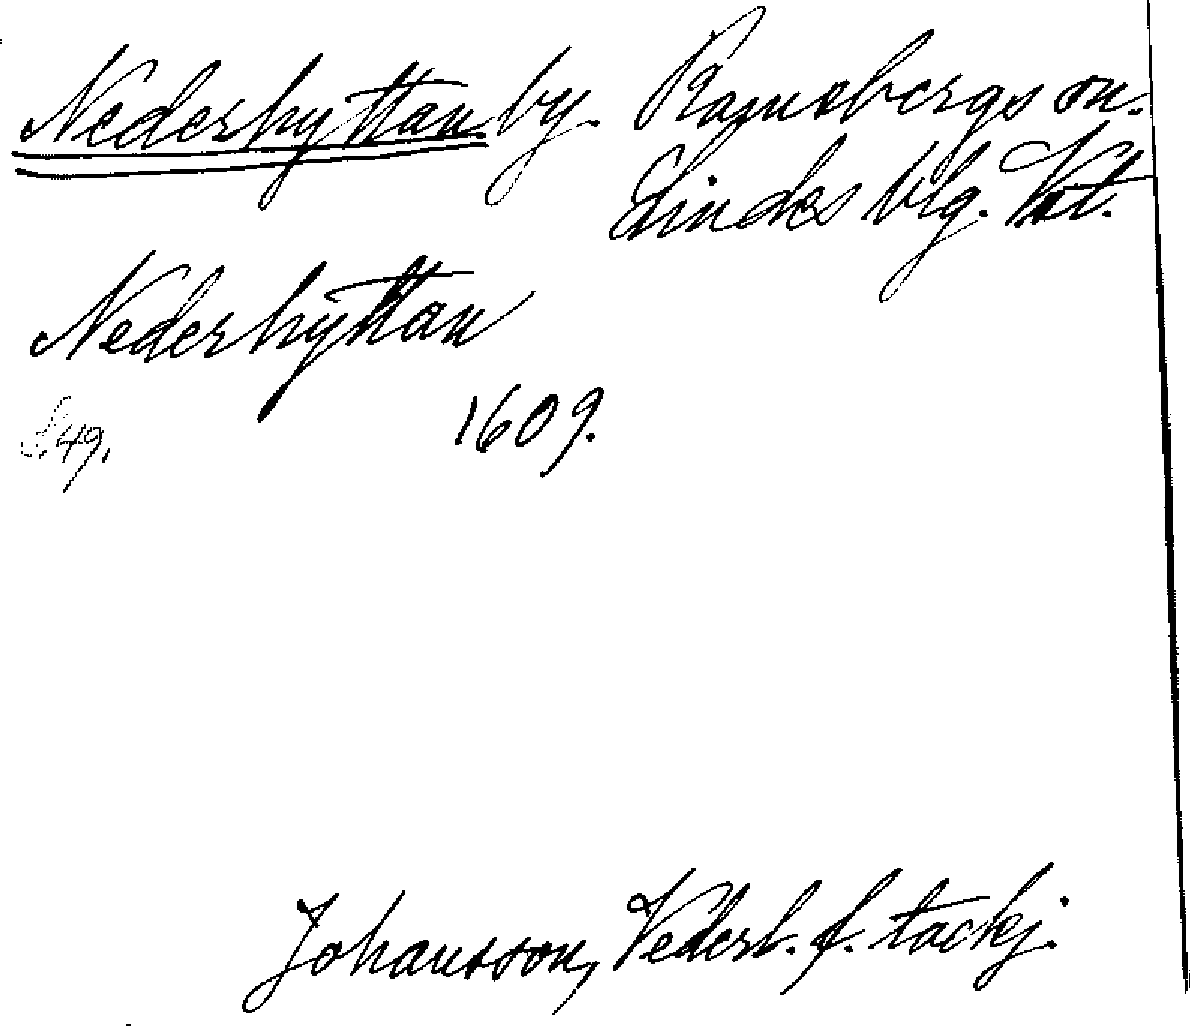 Nederhyttan by. Ramsbergs sn.
Lindes blg. Vstt.
Nederhyttan
S. 49. 1609.
Johansson, Vederl. f. tackj.